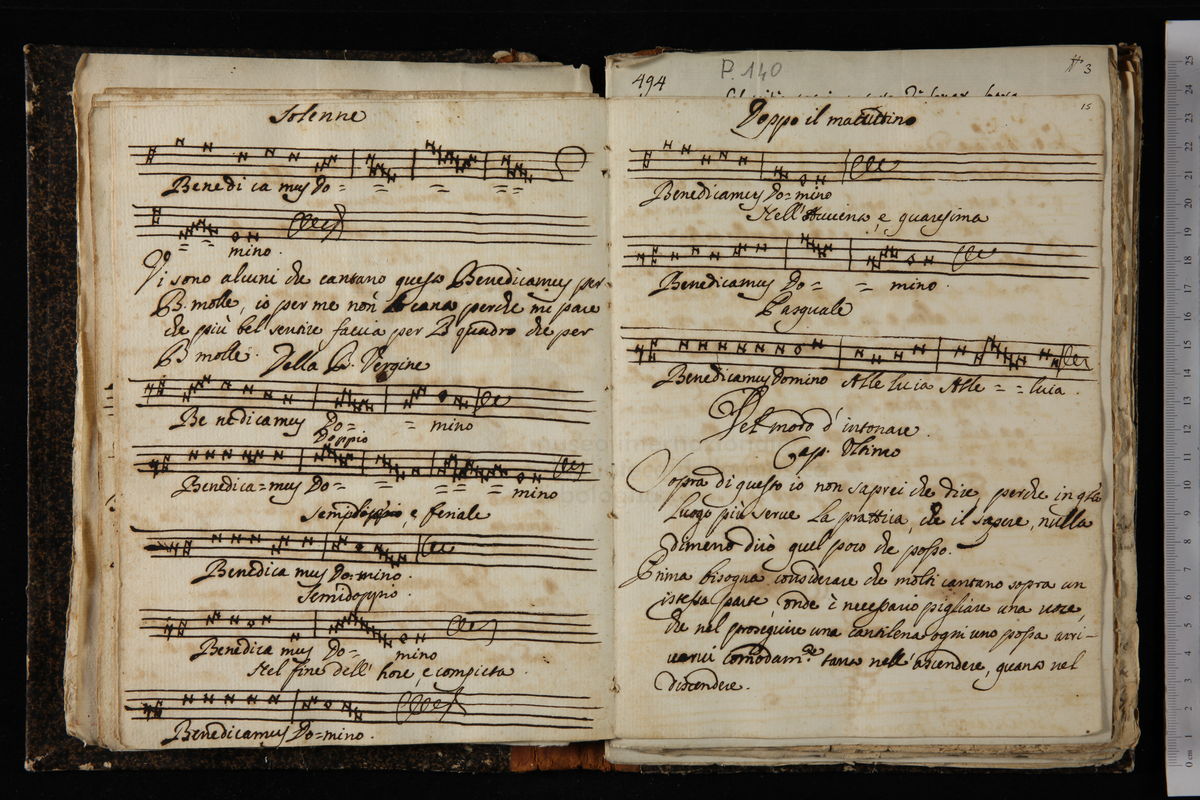 Solenne
Benedica mus Do= = = ==
= = mino.
Vi sono alcuni che cantano questo Benedicamus per
B. molle, io per me non perche mi pare
che più bel sentire faccia per B quadro che per
B molle.
Della B. Vergine
Be nedicamus Do= = mino
Doppio
Benedica=mus Do= = = = = mino
e feriale
Benedica mus Do=mino.
Semidoppio.
Benedica mus Do= mino
Nel fine dell' hore, e compieta.
Benedicamus Do=mino.
494
P. 140
3
15
Doppo il matutino
Benedicamus Do=mino
Nell' e quaresima
Benedicamus Do= = mino.
Pasquale
Benedicamus Domino Alle luia Alle = = luia.
Del modo d' intonare.
Cap. Ultimo
Sopra di questo io non saprei che dire, perche in
luogo più serve la prattica, che il sapere, nulla
dimeno dirò quel poco che posso.
Prima bisogna considerare che molti cantano sopra un
istessa parte, onde è necessario pigliare una voce,
che nel proseguire una cantilena ogni uno possa arri-
varvi comodam.te tanto nell' ascendere, quanto nel
discendere.
museointerna
bologna
25
24
23
22
21
20
19
18
17
16
15
14
13
12
11
10
9
8
7
6
5
4
3
2
1
0 cm